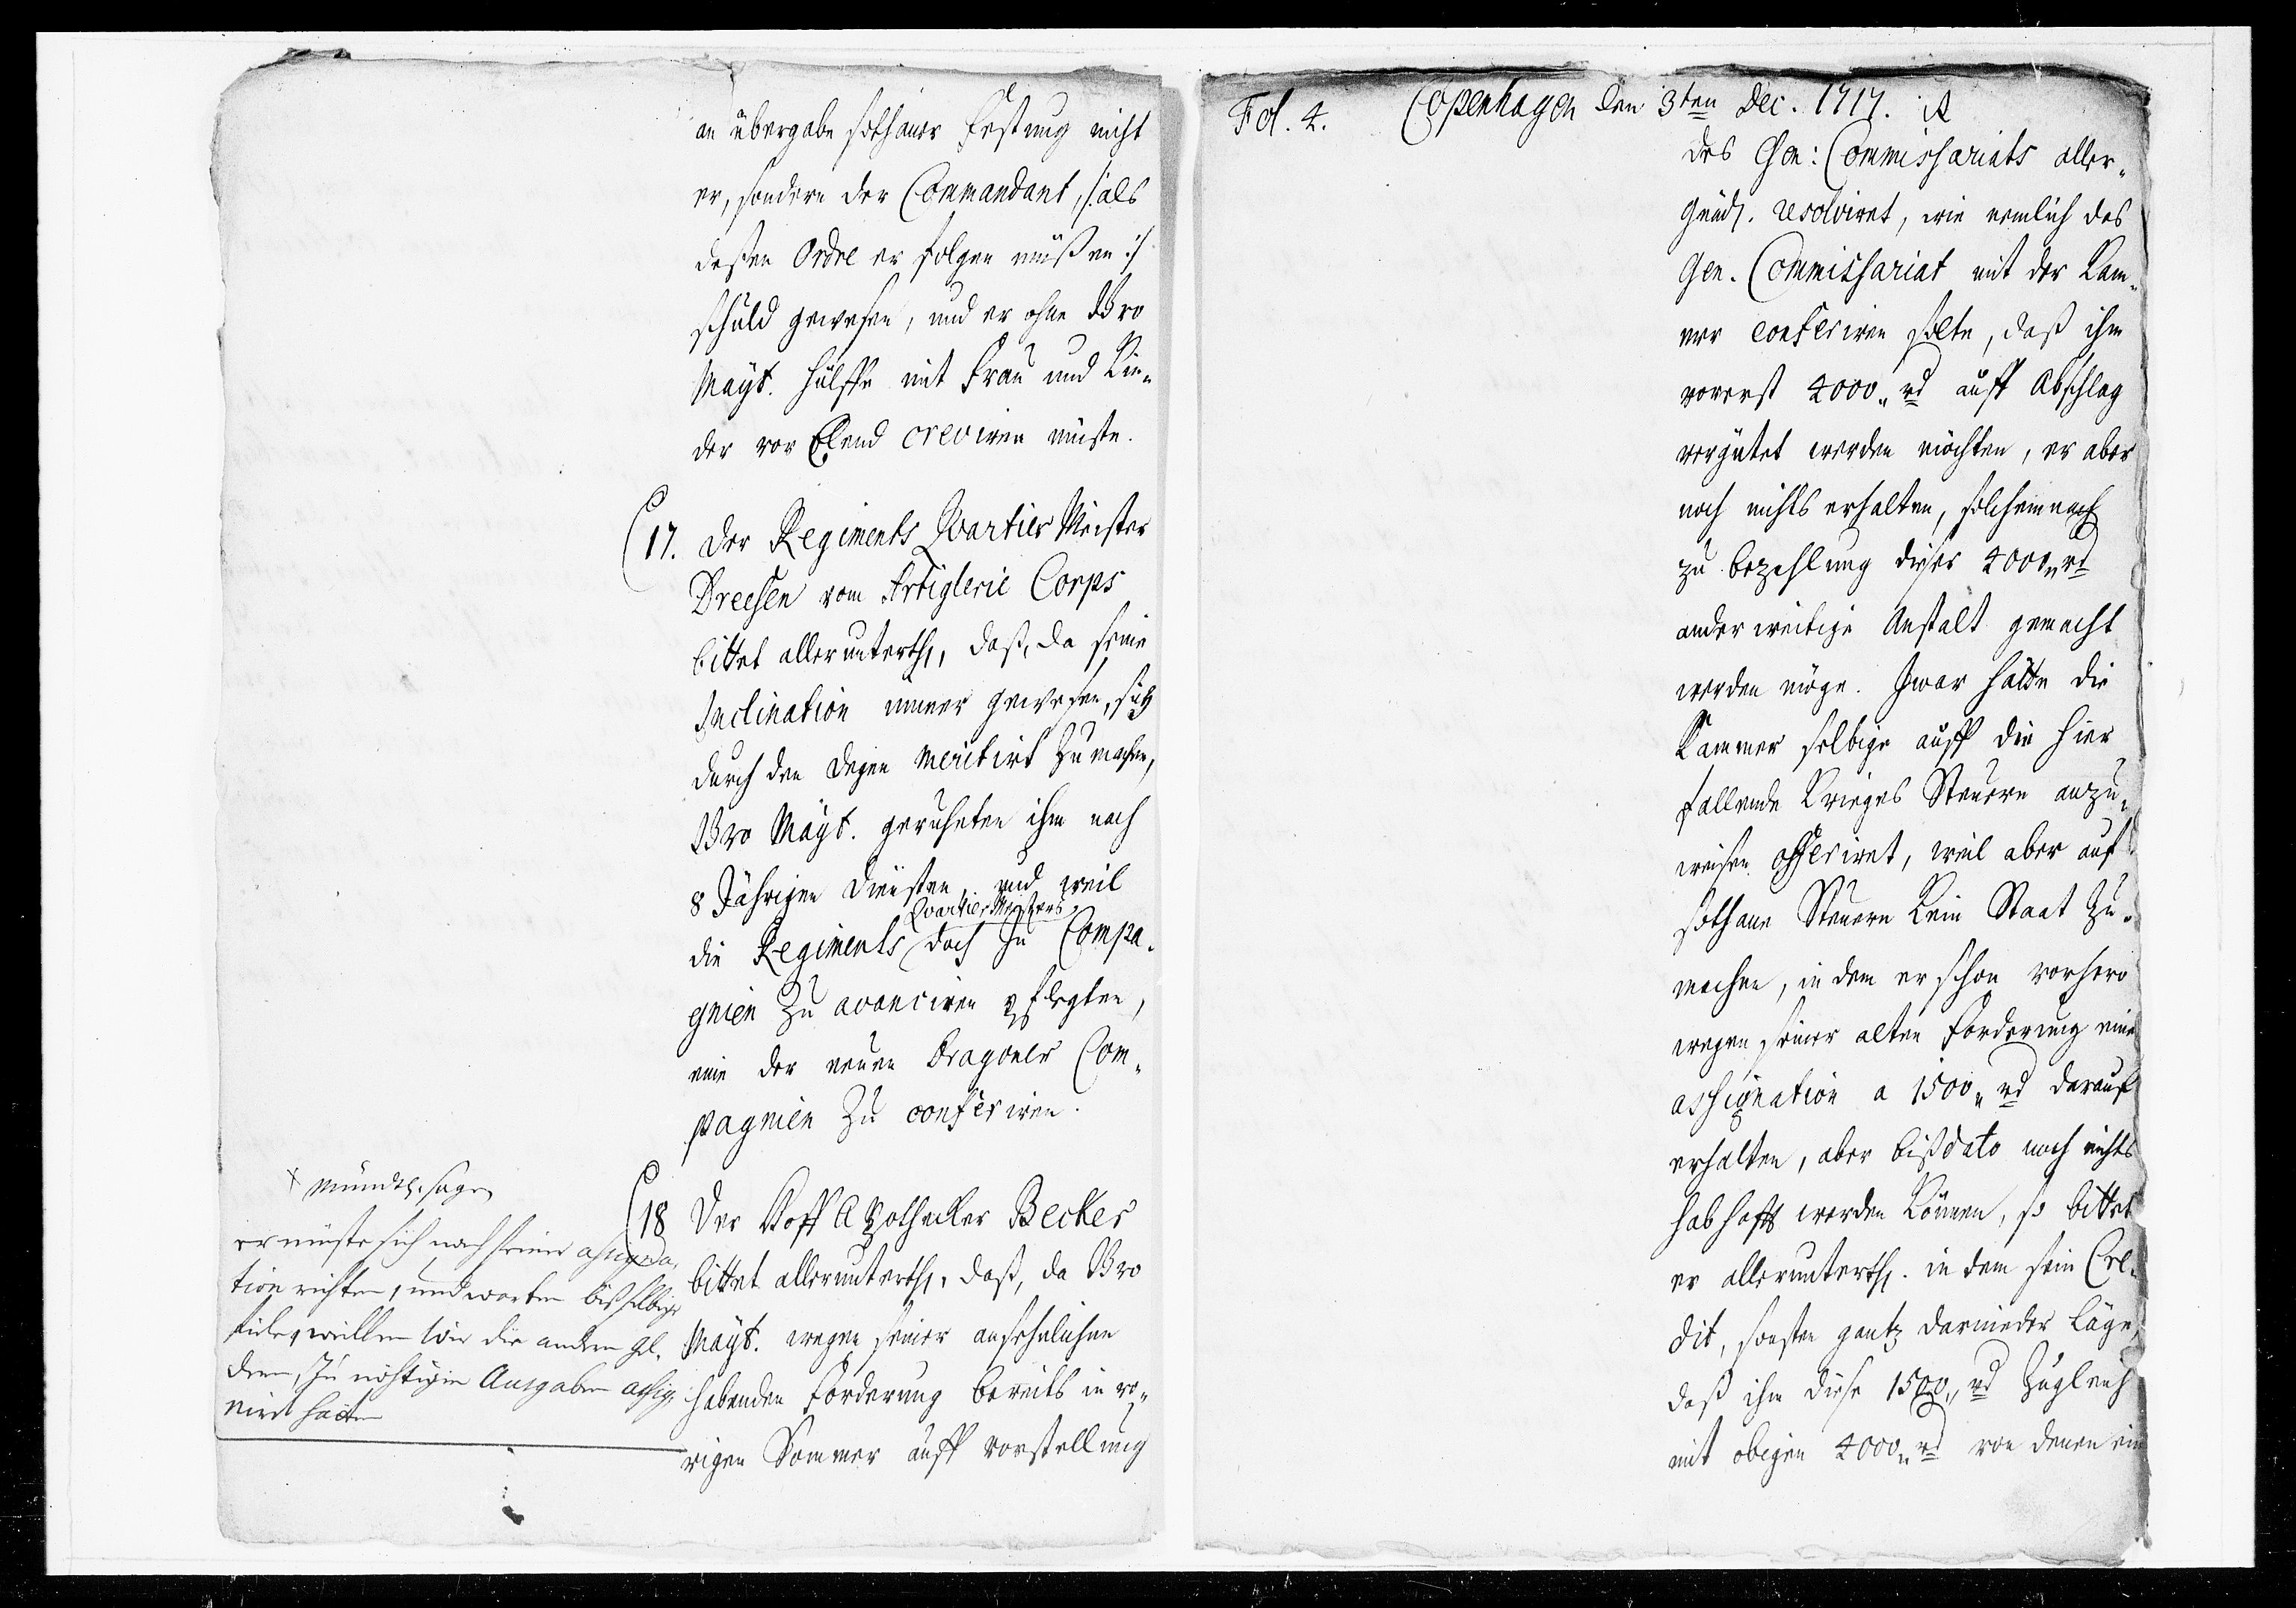 an übergabe sothaner Festung nicht
er, sondern der Commandant, /: als
deßen Ordre er folgen müßen :/
schuld gewesen, und er ohne Ewro
Maÿt. hülffe mit Frau und Kin-
der vor Elend creviren müste.
17. Der Regiments Qvartier Meister
Dreesen vom Artiglerie Corps
bittet allerunterth., daß, da seine
Inclination immer gewesen, sich
durch den Degen meritirt zu machen,
Ewro Maÿt. geruheten ihm nach
8 Jährigen Diensten, und weil
Qvartier Meisters
die Regiments doch zu Compa-
gnien zu avanciren pflegten,
eine der neuen Dragoner Com-
pagnien zu conferiren.
18 Der Hoff Apothecker Becker
bittet allerunterth., daß, da Ewro
Maÿt. wegen seiner ansehnlichen
habenden Forderung bereits in vo-
rigen Sommer auff vorstellung
+ mündtl. sagen
er müste sich nach seiner assigna-
tion richten, und warten biß selbige
fiele, weillen Wir die andern gel-
dern, zu nöhtigen Ausgaben assig-
nirt hätten
Fol. 4. Copenhagen den 3ten Dec. 1717.
des Gen: Commissariats aller-
gnäds. resolviret, wie nemlich das
Gen. Commissariat mit der Kam-
mer conferiren solte, daß ihm
vorerst 4000 rd auff Abschlag
vergütet werden möchten, er aber
noch nichts erhalten, solchemnach
zu bezahlung dieser 4000 rd
anderweitige Anstalt gemacht
werden möge. Zwar hätte die
Kammer selbige auff die hier
fallende Krieges Steuern anzu-
weisen offeriret, weil aber auf
sothane Steuern kein Staat zu
machen, in dem er schon vorhero
wegen seiner alten Forderung eine
assignation a 1500 rd darauf
erhalten, aber biß dato noch nichts
habhafft werden können, so bittet
er allerunterth. in dem sein Cre-
dit, sonsten gantz darnieder läge,
daß ihm diese 1500 rd zugleich
mit obigen 4000 rd von denen ein